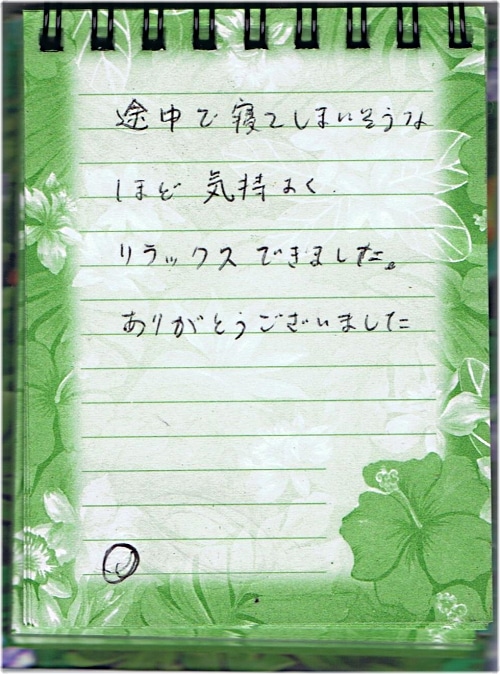 途中で寝てしまいそうな
ほど 気持よく.
リラックスできました。
ありがとうございました